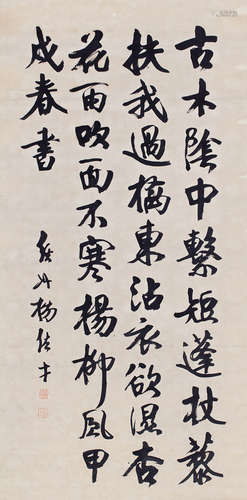 古木陰中繫短蓬杖藜
扶我過橋東沾衣欲濕杏
花雨吹面不寒楊柳風甲
戍春書